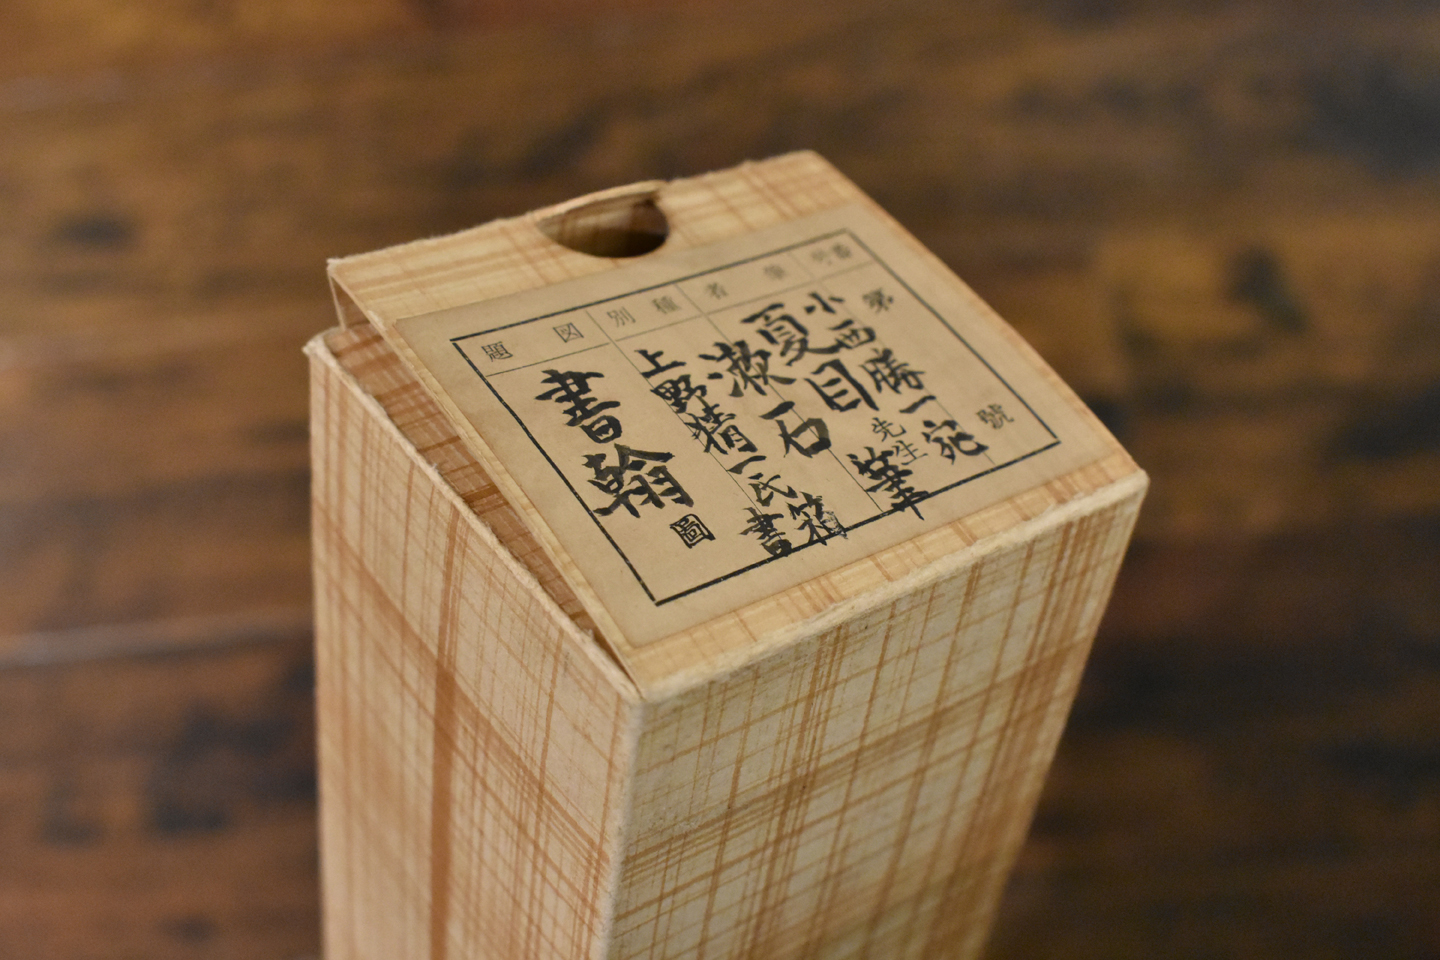 番号
筆者
種別
図題
第 號
小西勝一宛
夏目漱石先生筆
上野精一氏書箱
書翰圖